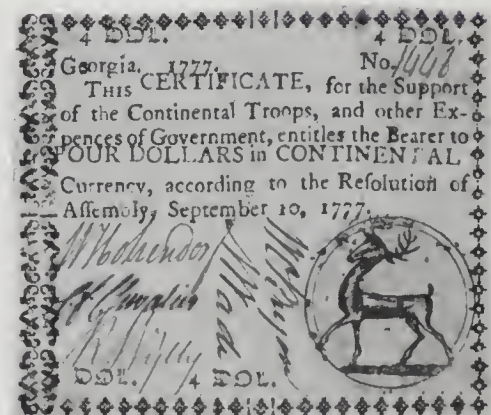 4 DOL. 4 DOL.
Georgia. 1777. No. 1448
THIS CERTIFICATE, for the Support
of the Continental Troops, and other Ex-
pences of Government, entitles the Bearer to
FOUR DOLLARS in CONTINENTAL
Currency, according to the Resolution of
Assembly, September 10, 1777.
DOL. 4 DOL.